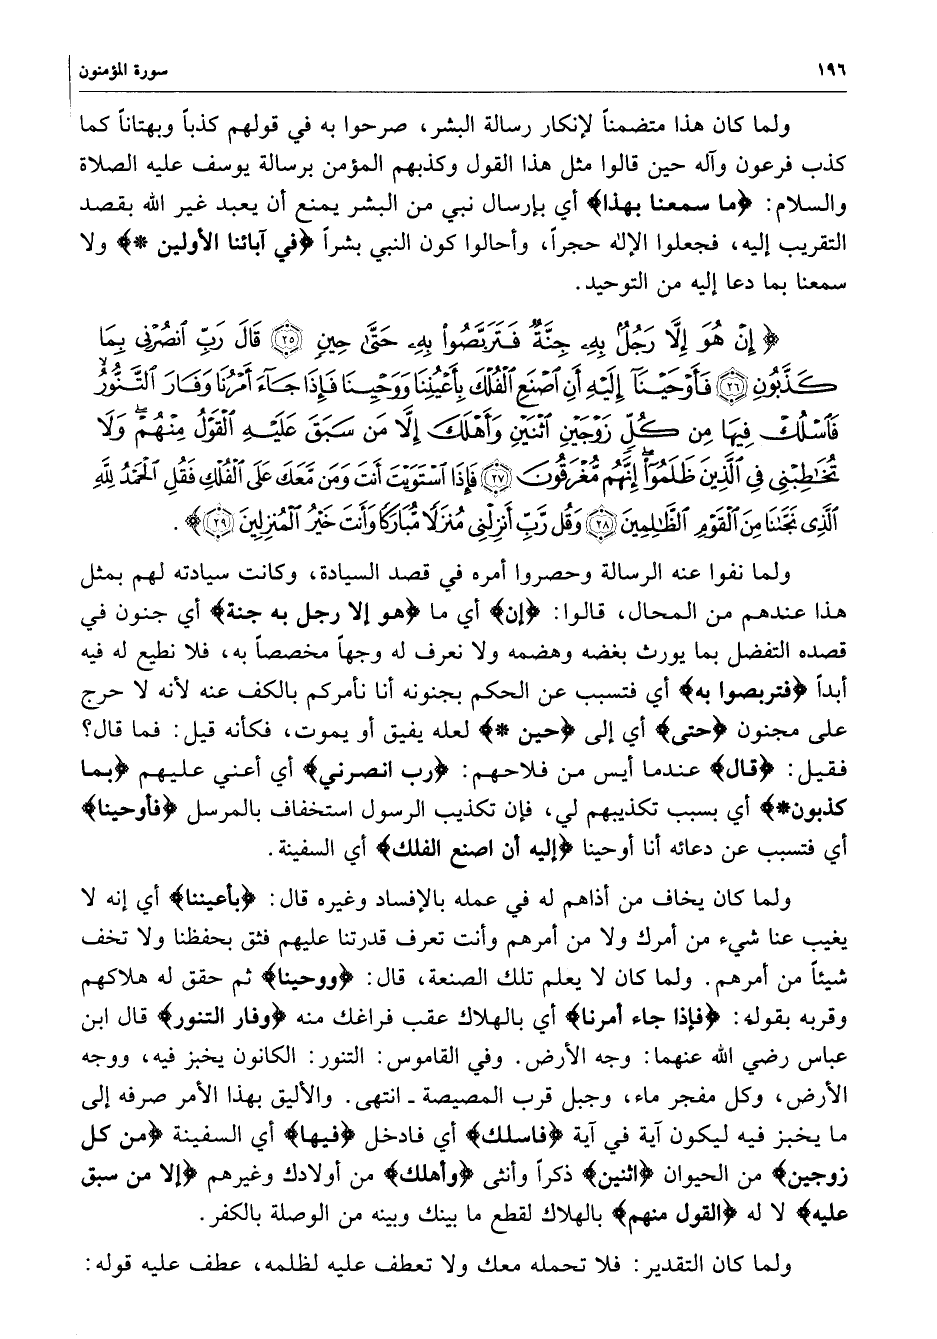 ١٩٦
سورة المؤمنون
ولما كان هذا متضمناً لإنكار رسالة البشر، صرحوا به في قولهم كذباً وبهتاناً كما
كذب فرعون وآله حين قالوا مثل هذا القول وكذبهم المؤمن برسالة يوسف عليه الصلاة
والسلام: ﴿ما سمعنا بهذا﴾ أي بإرسال نبي من البشر يمنع أن يعبد غير الله بقصد
التقريب إليه، فجعلوا الإله حجراً، وأحالوا كون النبي بشراً ﴿في آبائنا الأولين *﴾ ولا
سمعنا بما دعا إليه من التوحيد.
﴿ إِنْ هُوَ إِلَّا رَجُلٌۢ بِهِۦ جِنَّةٌ فَتَرَبَّصُوا۟ بِهِۦ حَتَّىٰ حِينٍ ۝٢٥ قَالَ رَبِّ ٱنصُرْنِى بِمَا
كَذَّبُونِ ۝٢٦ فَأَوْحَيْنَآ إِلَيْهِ أَنِ ٱصْنَعِ ٱلْفُلْكَ بِأَعْيُنِنَا وَوَحْيِنَا فَإِذَا جَآءَ أَمْرُنَا وَفَارَ ٱلتَّنُّورُ ۙ
فَٱسْلُكْ فِيهَا مِن كُلٍّ زَوْجَيْنِ ٱثْنَيْنِ وَأَهْلَكَ إِلَّا مَن سَبَقَ عَلَيْهِ ٱلْقَوْلُ مِنْهُمْ ۖ وَلَا
تُخَٰطِبْنِى فِى ٱلَّذِينَ ظَلَمُوٓا۟ ۖ إِنَّهُم مُّغْرَقُونَ ۝٢٧ فَإِذَا ٱسْتَوَيْتَ أَنتَ وَمَن مَّعَكَ عَلَى ٱلْفُلْكِ فَقُلِ ٱلْحَمْدُ لِلَّهِ
ٱلَّذِى نَجَّىٰنَا مِنَ ٱلْقَوْمِ ٱلظَّٰلِمِينَ ۝٢٨ وَقُل رَّبِّ أَنزِلْنِى مُنزَلًا مُّبَارَكًا وَأَنتَ خَيْرُ ٱلْمُنزِلِينَ ۝٢٩﴾.
ولما نفوا عنه الرسالة وحصروا أمره في قصد السيادة، وكانت سيادته لهم بمثل
هذا عندهم من المحال، قالوا: ﴿إن﴾ أي ما ﴿هو إلا رجل به جنة﴾ أي جنون في
قصده التفضل بما يورث بغضه وهضمه ولا نعرف له وجهاً مخصصاً به، فلا نطيع له فيه
أبداً ﴿فتربصوا به﴾ أي فتسبب عن الحكم بجنونه أنا نأمركم بالكف عنه لأنه لا حرج
على مجنون ﴿حتى﴾ أي إلى ﴿حين *﴾ لعله يفيق أو يموت، فكأنه قيل: فما قال؟
فقيل: ﴿قال﴾ عندما أيس من فلاحهم: ﴿رب انصرني﴾ أي أعني عليهم ﴿بما
كذبون*﴾ أي بسبب تكذيبهم لي، فإن تكذيب الرسول استخفاف بالمرسل ﴿فأوحينا﴾
أي فتسبب عن دعائه أنا أوحينا ﴿إليه أن اصنع الفلك﴾ أي السفينة.
ولما كان يخاف من أذاهم له في عمله بالإفساد وغيره قال: ﴿بأعيننا﴾ أي إنه لا
يغيب عنا شيء من أمرك ولا من أمرهم وأنت تعرف قدرتنا عليهم فثق بحفظنا ولا تخف
شيئاً من أمرهم. ولما كان لا يعلم تلك الصنعة، قال: ﴿ووحينا﴾ ثم حقق له هلاكهم
وقربه بقوله: ﴿فإذا جاء أمرنا﴾ أي بالهلاك عقب فراغك منه ﴿وفار التنور﴾ قال ابن
عباس رضي الله عنهما: وجه الأرض. وفي القاموس: التنور: الكانون يخبز فيه، ووجه
الأرض، وكل مفجر ماء، وجبل قرب المصيصة ـ انتهى. والأليق بهذا الأمر صرفه إلى
ما يخبز فيه ليكون آية في آية ﴿فاسلك﴾ أي فادخل ﴿فيها﴾ أي السفينة ﴿من كل
زوجين﴾ من الحيوان ﴿اثنين﴾ ذكراً وأنثى ﴿وأهلك﴾ من أولادك وغيرهم ﴿إلا من سبق
عليه﴾ لا له ﴿القول منهم﴾ بالهلاك لقطع ما بينك وبينه من الوصلة بالكفر.
ولما كان التقدير: فلا تحمله معك ولا تعطف عليه لظلمه، عطف عليه قوله: